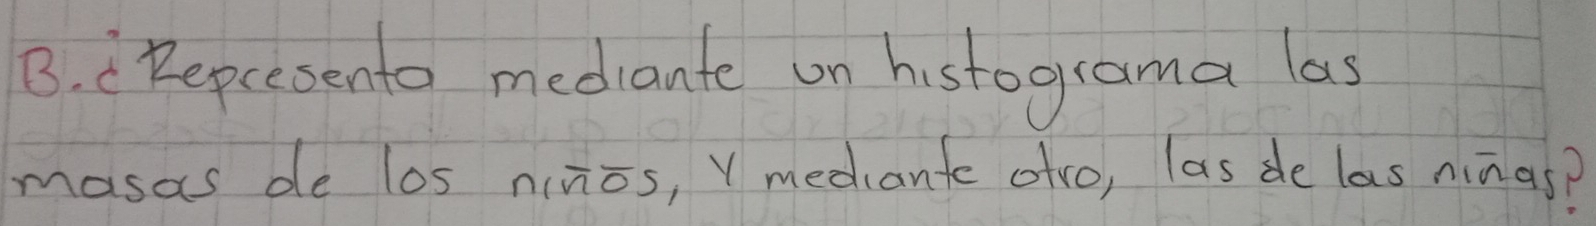 B. ¿Representa mediante un histograma las
masas de los niños, y mediante otro, las de las niñas?